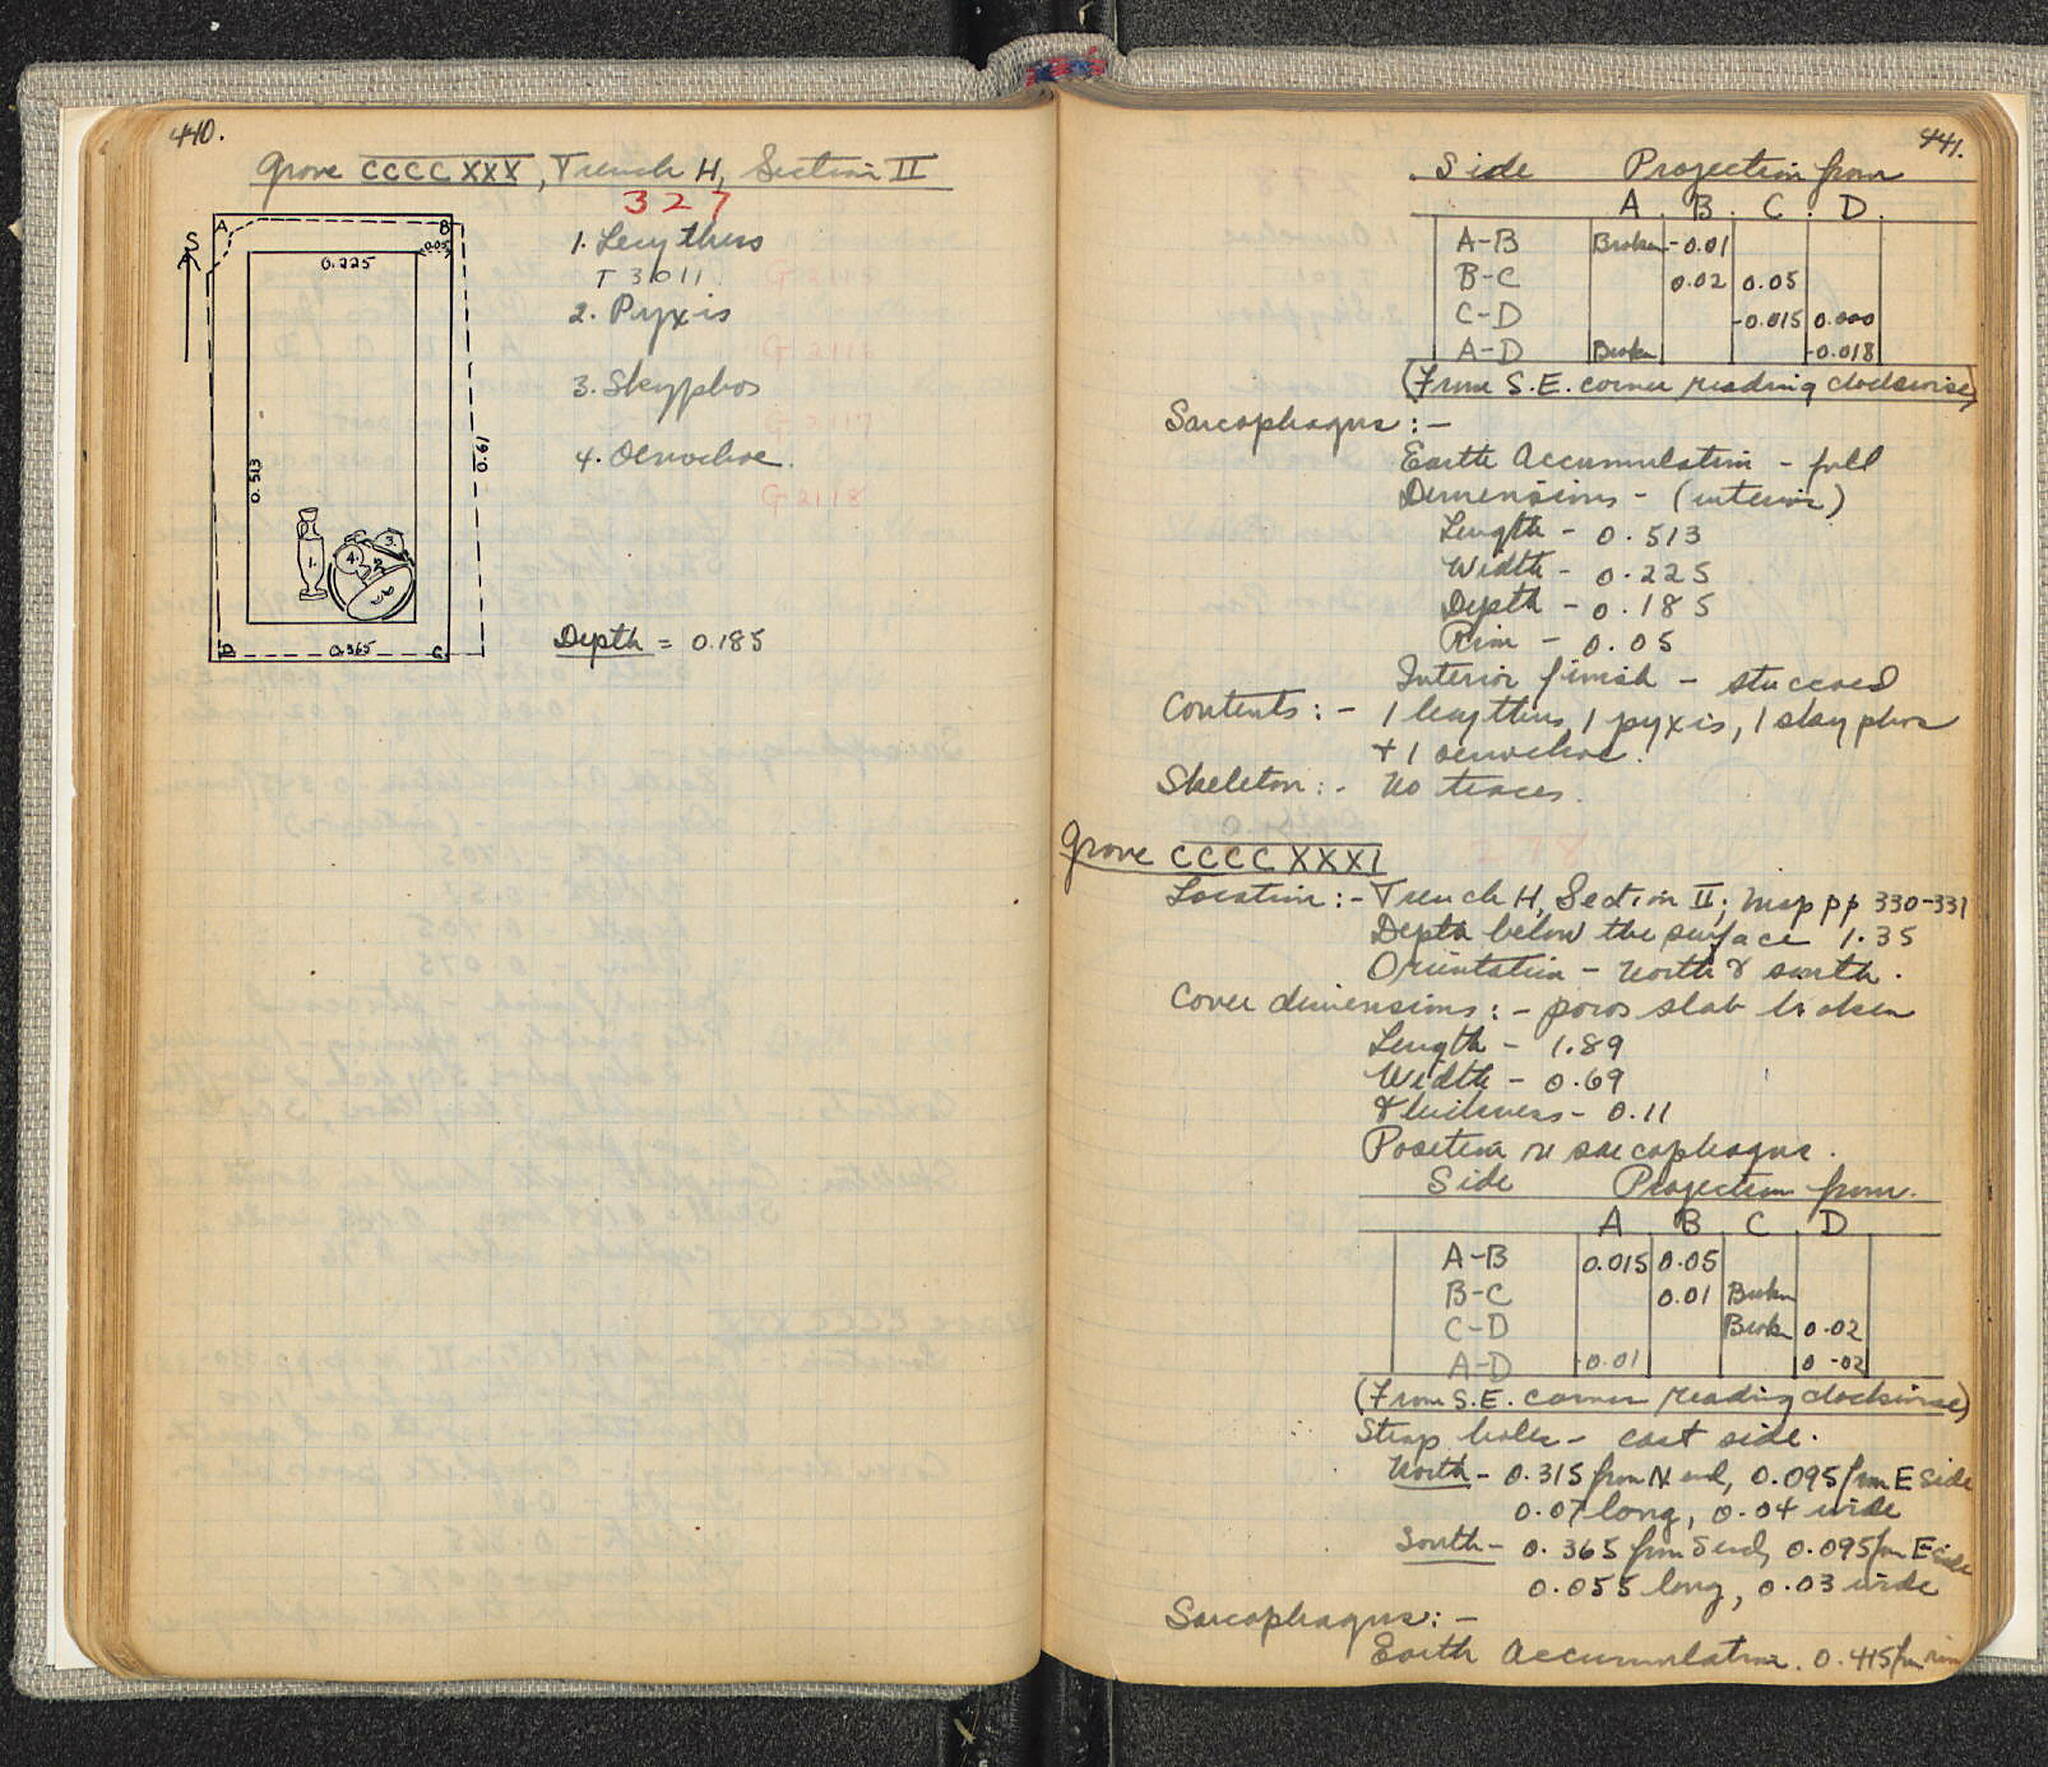 440.
Grave CCCCXXX, Trench H, Section II
327
S
A
B
0.05
0.225
0.513
0.61
1.
2.
3.
4.
D
0.365
C
1. Lecythus
T 3011
2. Pyxis
3. Skyphos
4. Oenochoe.
Depth = 0.185
441.
Side Projection from
A. B. C. D.
A-B Broken -0.01
B-C 0.02 0.05
C-D -0.015 0.000
A-D Broken -0.018
(From S.E. corner reading clockwise)
Sarcophagus:-
Earth Accumulation - full
Dimensions - (interior)
Length - 0.513
Width - 0.225
Depth - 0.185
Rim - 0.05
Interior finish - stuccoed
Contents:- 1 lecythus, 1 pyxis, 1 skyphos
+ 1 oenochoe.
Skeleton:- No traces.
Grave CCCCXXXI
Location:- Trench H, Section II; Map pp 330-331
Depth below the surface 1.35
Orientation - North & south.
Cover dimensions:- poros slab broken
Length - 1.89
Width - 0.69
Thickness - 0.11
Position on sarcophagus.
Side Projection from.
A B C D
A-B 0.015 0.05
B-C 0.01 Broken
C-D Broken 0.02
A-D -0.01 0.02
(From S.E. corner reading clockwise)
Strap holes - east side.
North - 0.315 from N end, 0.095 from E side
0.07 long, 0.04 wide
South - 0.365 from S end, 0.095 from E side
0.055 long, 0.03 wide
Sarcophagus:-
Earth Accumulation. 0.415 from rim